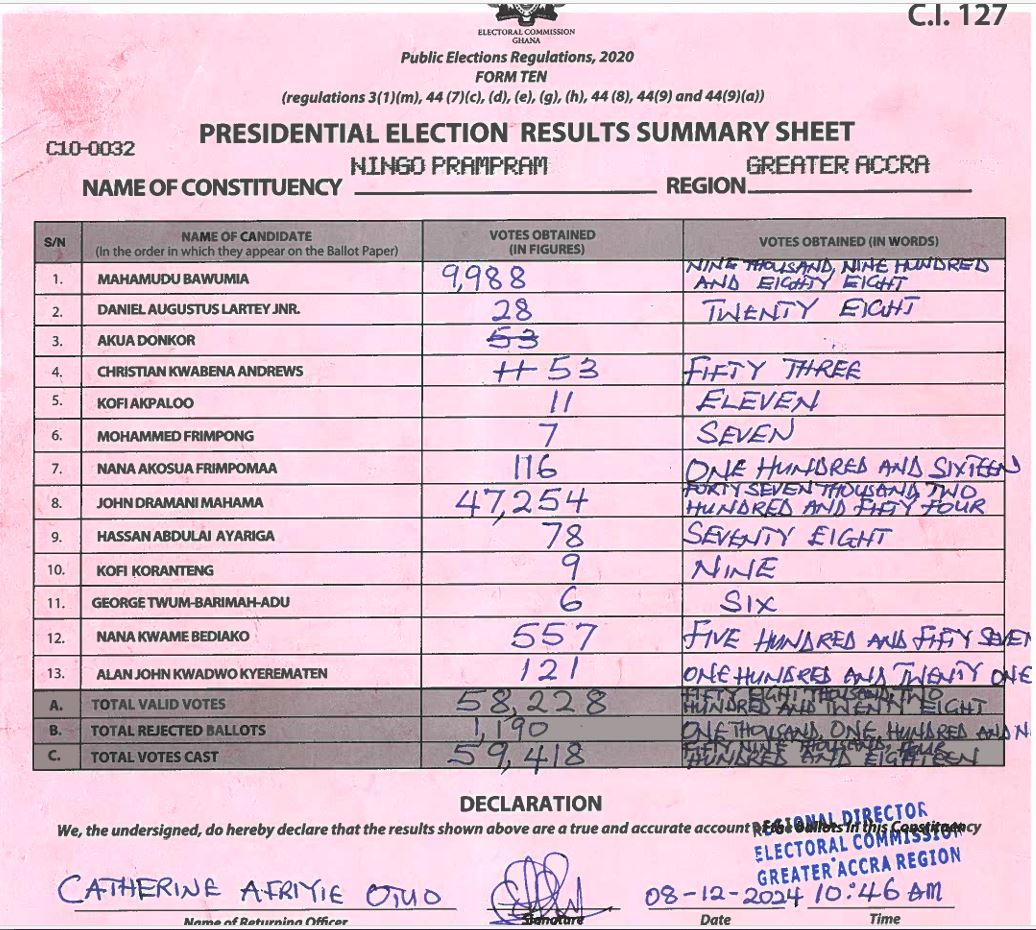 C.I. 127
ELECTORAL COMMISSION
GHANA
Public Elections Regulations, 2020
FORM TEN
(regulations 3(1)(m), 44 (7)(c), (d), (e), (g), (h), 44 (8), 44(9) and 44(9)(a))
PRESIDENTIAL ELECTION RESULTS SUMMARY SHEET
C10-0032
NAME OF CONSTITUENCY NINGO PRAMPRAM REGION GREATER ACCRA
S/N NAME OF CANDIDATE (In the order in which they appear on the Ballot Paper) VOTES OBTAINED (IN FIGURES) VOTES OBTAINED (IN WORDS)
1. MAHAMUDU BAWUMIA 9,988 NINE THOUSAND, NINE HUNDRED AND EIGHTY EIGHT
2. DANIEL AUGUSTUS LARTEY JNR. 28 TWENTY EIGHT
3. AKUA DONKOR 53
4. CHRISTIAN KWABENA ANDREWS 11 53 FIFTY THREE
5. KOFI AKPALOO 11 ELEVEN
6. MOHAMMED FRIMPONG 7 SEVEN
7. NANA AKOSUA FRIMPOMAA 116 ONE HUNDRED AND SIXTEEN
8. JOHN DRAMANI MAHAMA 47,254 FORTY SEVEN THOUSAND, TWO HUNDRED AND FIFTY FOUR
9. HASSAN ABDULAI AYARIGA 78 SEVENTY EIGHT
10. KOFI KORANTENG 9 NINE
11. GEORGE TWUM-BARIMAH-ADU 6 SIX
12. NANA KWAME BEDIAKO 557 FIVE HUNDRED AND FIFTY SEVEN
13. ALAN JOHN KWADWO KYEREMATEN 121 ONE HUNDRED AND TWENTY ONE
A. TOTAL VALID VOTES 58,228 FIFTY EIGHT THOUSAND, TWO HUNDRED AND TWENTY EIGHT
B. TOTAL REJECTED BALLOTS 1,190 ONE THOUSAND, ONE HUNDRED AND N
C. TOTAL VOTES CAST 59,418 FIFTY NINE THOUSAND, FOUR HUNDRED AND EIGHTEEN
DECLARATION
We, the undersigned, do hereby declare that the results shown above are a true and accurate account of the ballots in this Constituency
REGIONAL DIRECTOR
ELECTORAL COMMISSION
GREATER ACCRA REGION
CATHERINE AFRIYIE 08-12-2024 10:46 AM
Name of Returning Officer Signature Date Time